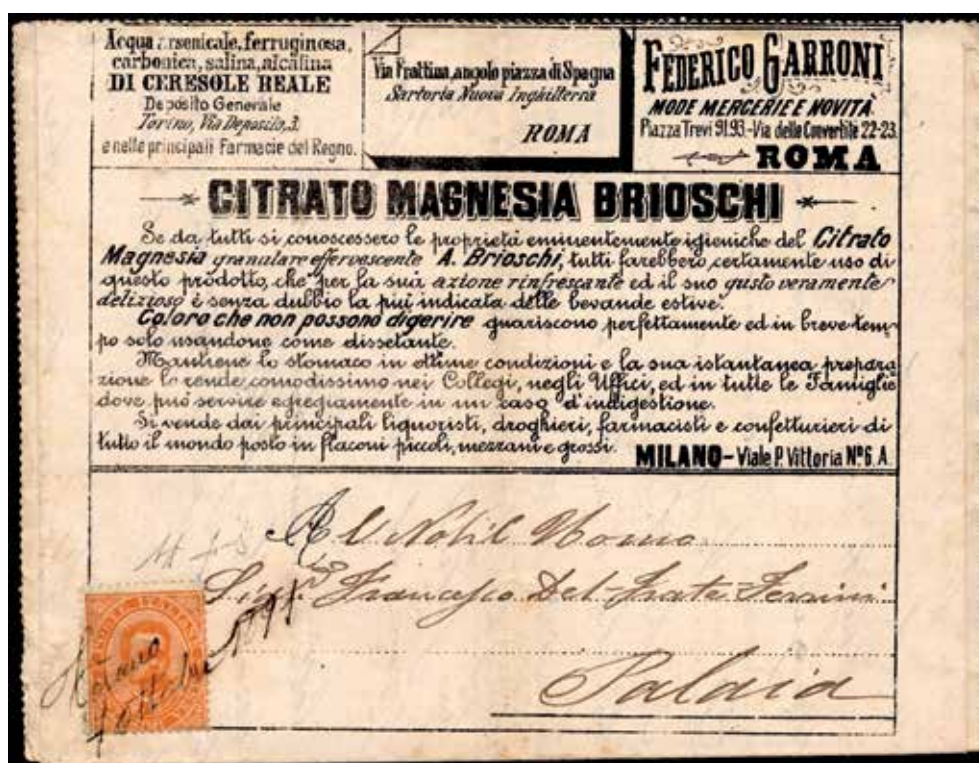 Acqua arsenicale, ferruginosa,
carbonica, salina, alcalina
DI CERESOLE REALE
Deposito Generale
Torino, Via Deposito, 3.
e nelle principali Farmacie del Regno.
Via Frattina, angolo piazza di Spagna
Sartoria Nuova Inghilterra
ROMA
FEDERICO GARRONI
MODE MERCERIE E NOVITÀ.
Piazza Trevi 91.93.-Via delle Convertite 22-23.
ROMA
CITRATO MAGNESIA BRIOSCHI
Se da tutti si conoscessero le proprietà eminentemente igieniche del Citrato
Magnesia granulare effervescente A. Brioschi, tutti farebbero certamente uso di
questo prodotto, che per la sua azione rinfrescante ed il suo gusto veramente
delizioso è senza dubbio la più indicata delle bevande estive.
Coloro che non possono digerire guariscono perfettamente ed in breve tem-
po solo usandone come dissetante.
Mantiene lo stomaco in ottime condizioni e la sua istantanea prepara
zione lo rende comodissimo nei Collegi, negli Uffici, ed in tutte le Famiglie
dove può servire egregiamente in un caso d'indigestione.
Si vende dai principali liquoristi, droghieri, farmacisti e confetturieri di
tutto il mondo posto in flaconi piccoli, mezzani e grossi.
MILANO - Viale P. Vittoria Nº 6 A.
Al Nobil Uomo
Sig. Francesco Del Frate Ferrini
Palaia